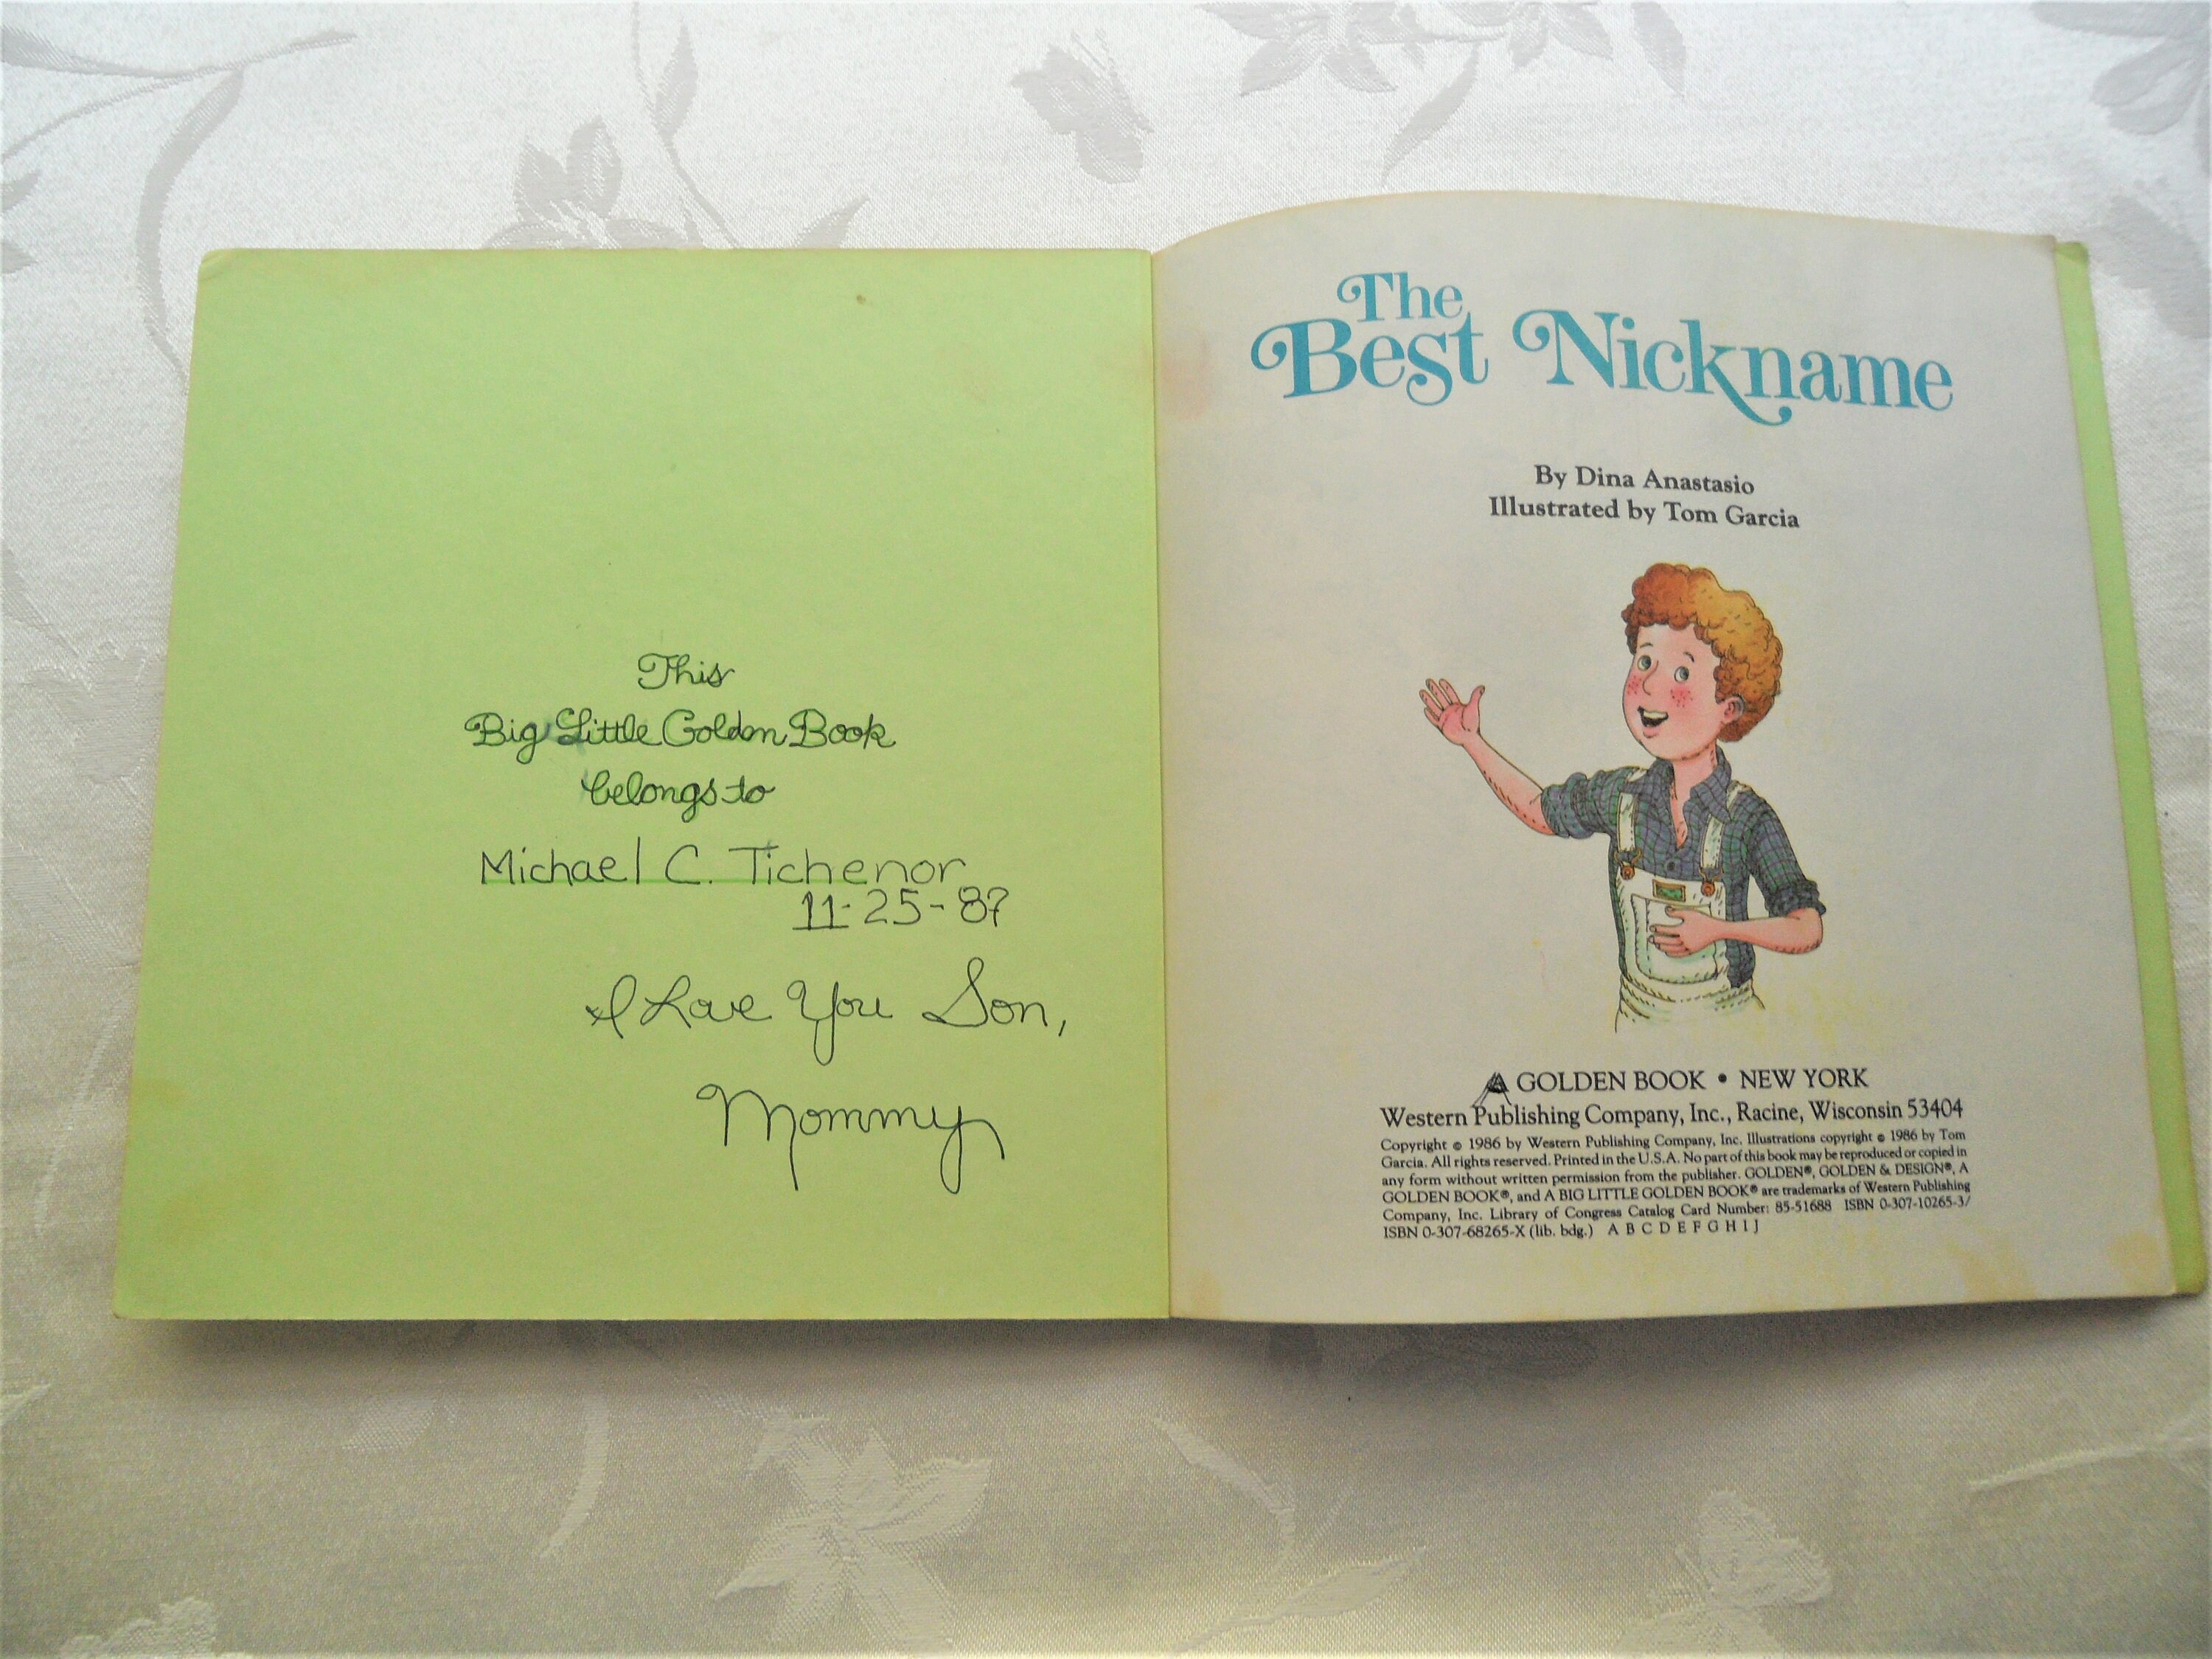 This
Big Little Golden Book
belongs to
Michael C. Tichenor
11-25-87
I Love You Son,
Mommy
The
Best Nickname
By Dina Anastasio
Illustrated by Tom Garcia
A GOLDEN BOOK • NEW YORK
Western Publishing Company, Inc., Racine, Wisconsin 53404
Copyright © 1986 by Western Publishing Company, Inc. Illustrations copyright © 1986 by Tom
Garcia. All rights reserved. Printed in the U.S.A. No part of this book may be reproduced or copied in
any form without written permission from the publisher. GOLDEN®, GOLDEN & DESIGN®, A
GOLDEN BOOK®, and A BIG LITTLE GOLDEN BOOK® are trademarks of Western Publishing
Company, Inc. Library of Congress Catalog Card Number: 85-51688 ISBN 0-307-10265-3/
ISBN 0-307-68265-X (lib. bdg.) A B C D E F G H I J